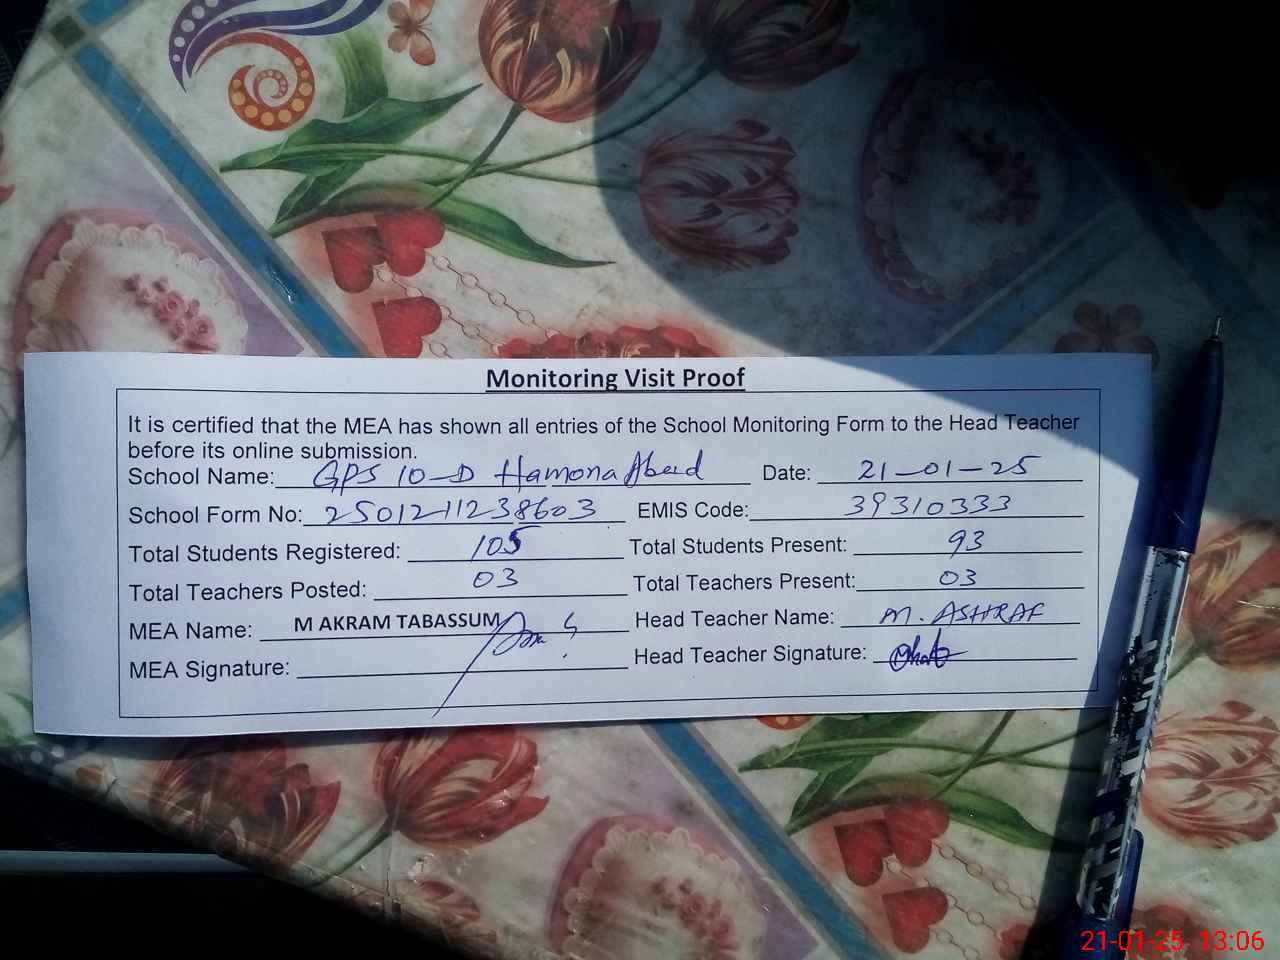 Monitoring Visit Proof
It is certified that the MEA has shown all entries of the School Monitoring Form to the Head Teacher
before its online submission.
School Name: GPS 10-D Hamona Abad Date: 21-01-25
School Form No: 25012111238603 EMIS Code: 39310333
Total Students Registered: 105 Total Students Present: 93
Total Teachers Posted: 03 Total Teachers Present: 03
MEA Name: M AKRAM TABASSUM Head Teacher Name: M. ASHRAF
MEA Signature: Head Teacher Signature:
21-01-25 13:06